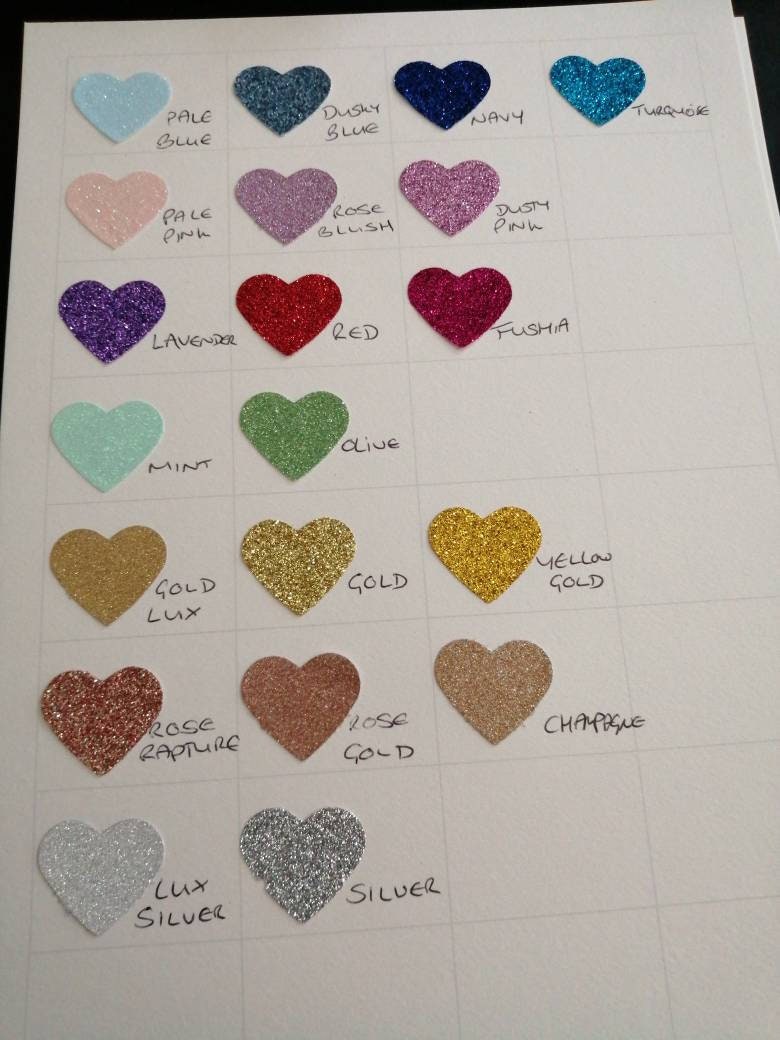 PALE
BLUE
DUSKY
BLUE
NAVY
TURQUOISE
PALE
PINK
ROSE
BLUSH
DUSTY
PINK
LAVENDER
RED
FUSHIA
MINT
OLIVE
GOLD
LUX
GOLD
YELLOW
GOLD
ROSE
RAPTURE
ROSE
GOLD
CHAMPAGNE
LUX
SILVER
SILVER